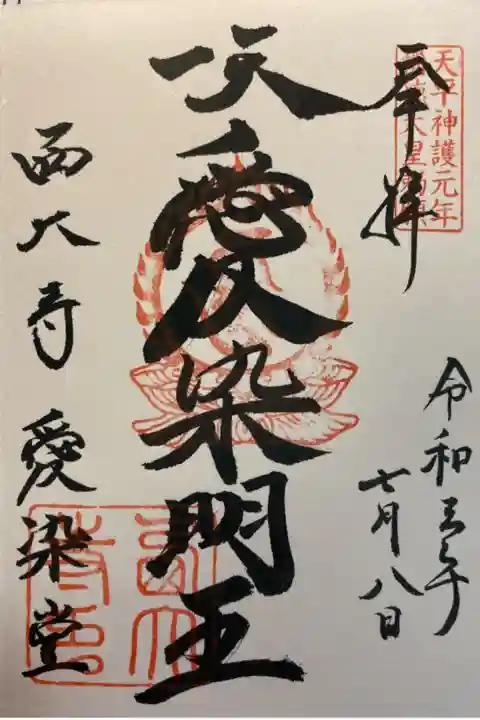 天平神護元年
稱徳天皇勅願
奉拝
令和五年
七月八日
愛染明王
西大寺 愛染堂